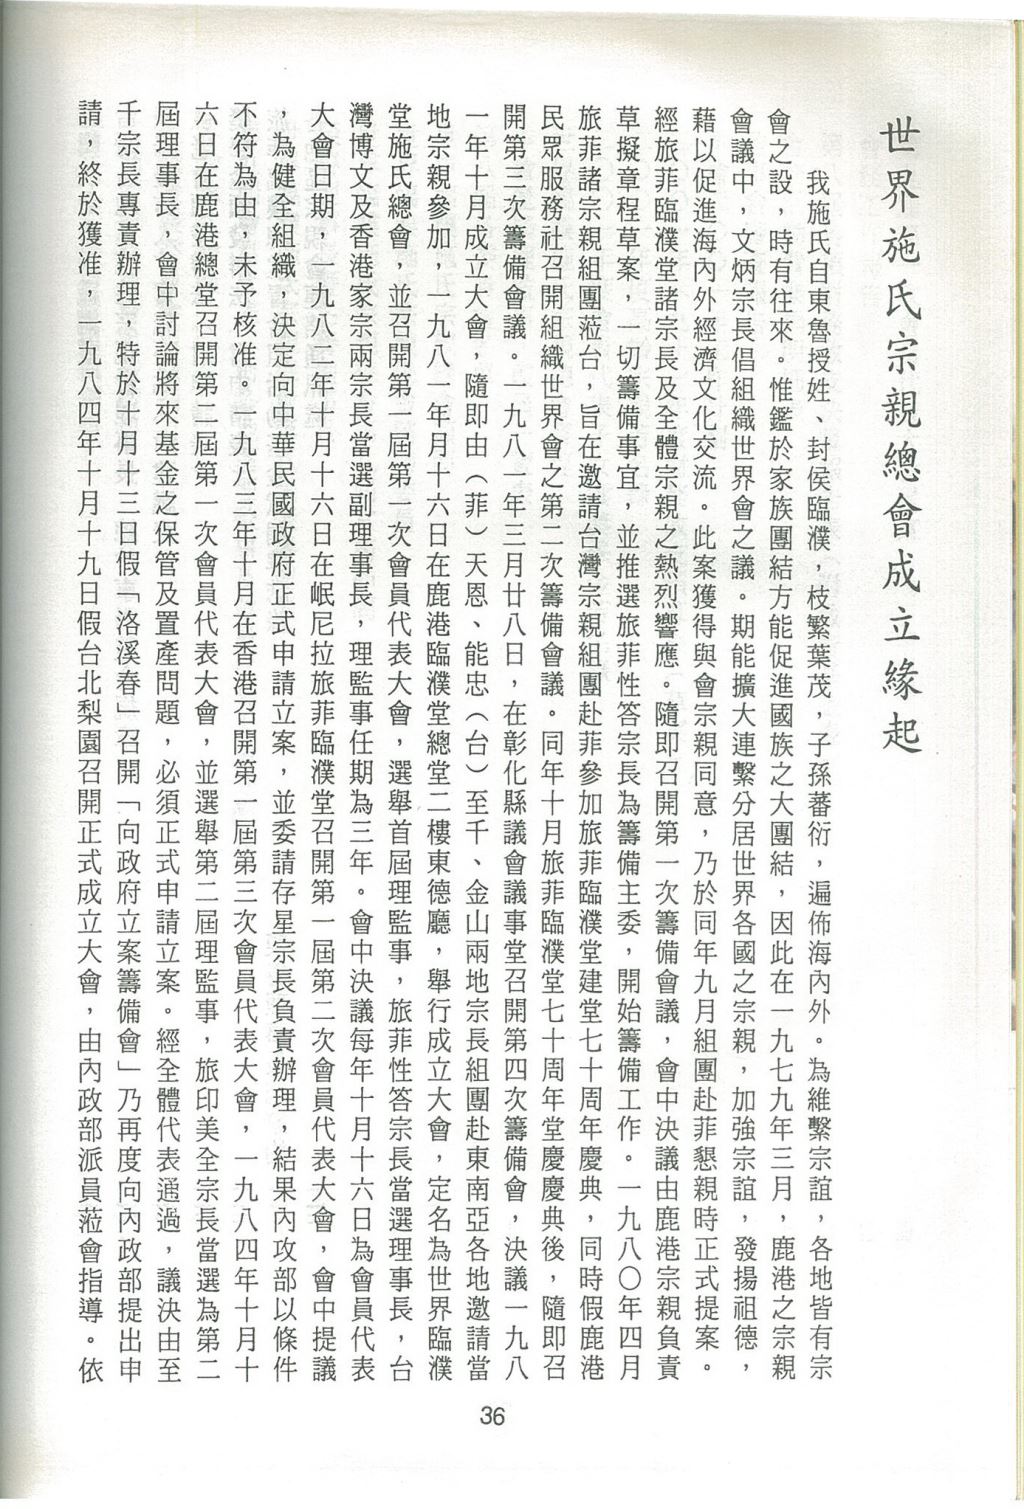 世界施氏宗親總會成立緣起
我施氏自東魯授姓、封侯臨濮，枝繁葉茂，子孫蕃衍，遍佈海內外。為維繫宗誼，各地皆有宗
會之設，時有往來。惟鑑於家族團結方能促進國族之大團結，因此在一九七九年三月，鹿港之宗親
會議中，文炳宗長倡組織世界會之議。期能擴大連繫分居世界各國之宗親，加強宗誼，發揚祖德，
藉以促進海內外經濟文化交流。此案獲得與會宗親同意，乃於同年九月組團赴菲懇親時正式提案。
經旅菲臨濮堂諸宗長及全體宗親之熱烈響應。隨即召開第一次籌備會議，會中決議由鹿港宗親負責
草擬章程草案，一切籌備事宜，並推選旅菲性答宗長為籌備主委，開始籌備工作。一九八〇年四月
旅菲諸宗親組團蒞台，旨在邀請台灣宗親組團赴菲參加旅菲臨濮堂建堂七十周年慶典，同時假鹿港
民眾服務社召開組織世界會之第二次籌備會議。同年十月旅菲臨濮堂七十周年堂慶慶典後，隨即召
開第三次籌備會議。一九八一年三月廿八日，在彰化縣議會議事堂召開第四次籌備會，決議一九八
一年十月成立大會，隨即由（菲）天恩、能忠（台）至千、金山兩地宗長組團赴東南亞各地邀請當
地宗親參加，一九八一年月十六日在鹿港臨濮堂總堂二樓東德廳，舉行成立大會，定名為世界臨濮
堂施氏總會，並召開第一屆第一次會員代表大會，選舉首屆理監事，旅菲性答宗長當選理事長，台
灣博文及香港家宗兩宗長當選副理事長，理監事任期為三年。會中決議每年十月十六日為會員代表
大會日期，一九八二年十月十六日在岷尼拉旅菲臨濮堂召開第一屆第二次會員代表大會，會中提議
，為健全組織，決定向中華民國政府正式申請立案，並委請存星宗長負責辦理，結果內攻部以條件
不符為由，未予核准。一九八三年十月在香港召開第一屆第三次會員代表大會，一九八四年十月十
六日在鹿港總堂召開第二屆第一次會員代表大會，並選舉第二屆理監事，旅印美全宗長當選為第二
屆理事長，會中討論將來基金之保管及置產問題，必須正式申請立案。經全體代表通過，議決由至
千宗長專責辦理，特於十月十三日假「洛溪春」召開「向政府立案籌備會」乃再度向內政部提出申
請，終於獲准，一九八四年十月十九日假台北梨園召開正式成立大會，由內政部派員蒞會指導。依
36